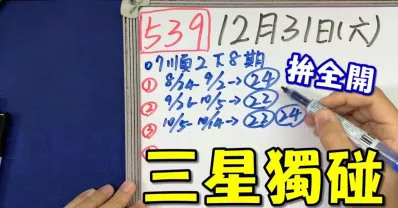 539 12月31日(六)
07順2下8期
① 8/24-9/2→24
拚全開
② 9/26-10/5→22
③ 10/5-10/14→22 24
三星獨碰